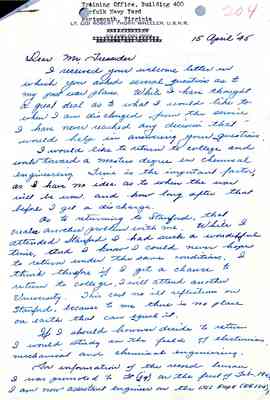 Training Office, Building 400
Norfolk Navy Yard
Portsmouth, Virginia
204
LT. (JG) ROBERT THORN WHEELER, U.S.N.R.
15 April '45
Dear Mr. Tresidder
I received your welcome letter in
which you asked several questions as to
my post war plans. While I have thought
a great deal as to what I would like to
when I am discharged from the service
I have never reached any decision that
would help in answering your questions
I would like to return to college and
work toward a masters degree in chemical
engineering. Time is the important factor,
as I have no idea as to when the war
will be won and how long after that
before I get a discharge.
As to returning to Stanford, that
creates another problem with me. While I
attended Stanford I had such a wonderful
time, that I know I could never hope
to return under the same conditions. I
think therefore if I get a chance to
return to college, I will attend another
University. This cast no ill reflection on
Stanford, because to me there is no place
on earth that can equal it.
If I should however decide to return
I would study in the field of electronics
mechanical and chemical engineering.
For information of the record bureau
I was promoted to Lt (jg) on the first of Feb. 
I am now assistant engineer on the USS